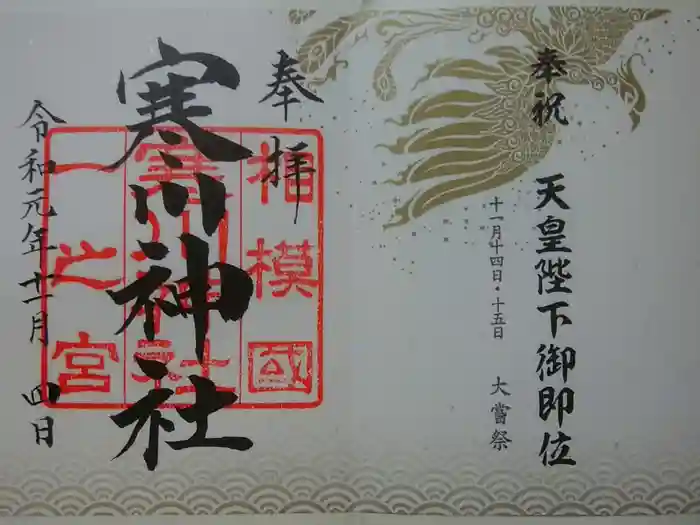 奉祝 天皇陛下御即位
十一月十四日・十五日 大嘗祭
奉拝
相模國
寒川神社
寒川神社
一之宮
令和元年十一月 四日